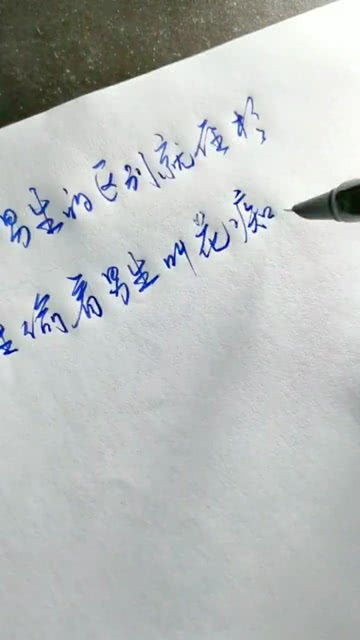 男生的区别就在于
生偷看男生叫花痴